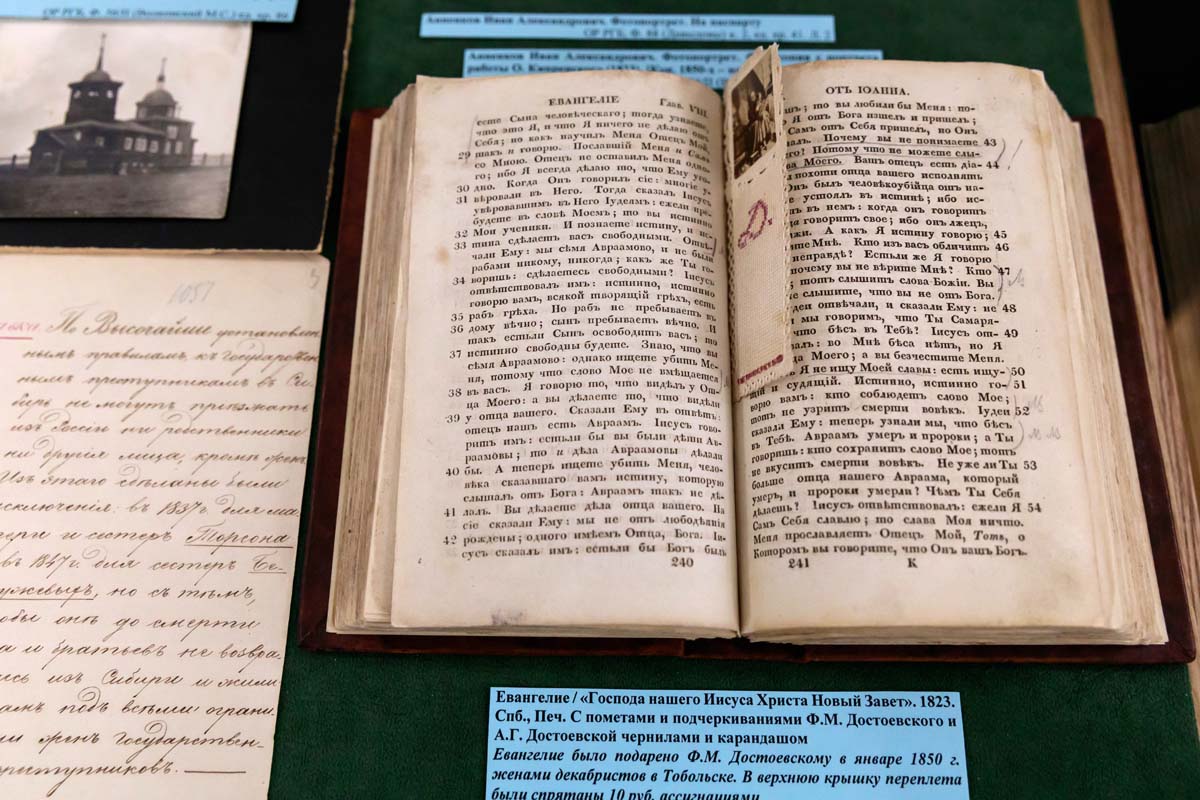 ОР РГБ, Ф.
Анненков Иван Александрович. Фотопортрет. На паспарту
ОР РГБ, Ф.
Анненков Иван Александрович. Фотопортрет.
работы О.
1051
3
По Высочайши установлен-
нымъ правиламъ, къ Государствен-
нымъ преступникамъ въ Си-
бирь не могутъ приезжать
изъ Россіи ни родственники
ни другія лица, кромѣ женъ
Изъ этаго сдѣланы были
исключенія: въ 1837 г. для ма-
тери и сестеръ Торсона
въ 1847 г. для сестеръ Бе-
стужевыхъ, но съ тѣмъ,
чтобы онѣ до смерти
а и братьевъ не возвра-
ись изъ Сибири и жили
амъ подъ всѣми ограни-
и женъ Государствен-
преступниковъ.
ЕВАНГЕЛІЕ Глав. VIII.
есте Сына человѣческаго; тогда узнаете,
что это Я, и что Я ничего не дѣлаю отъ
Себя; но какъ научилъ Меня Отецъ Мой,
29 такъ и говорю. Пославшій Меня и Самъ
со Мною. Отецъ не оставилъ Меня одно-
го; ибо Я всегда дѣлаю то, что Ему уго-
30 дно. Когда Онъ говорилъ сіе: многіе у-
31 вѣровали въ Него. Тогда сказалъ Іисусъ
увѣровавшимъ въ Него Іудеямъ: ежели пре-
будете въ словѣ Моемъ; то вы истинно
32 Мои ученики. И познаете истину, и ис-
33 тина сдѣлаетъ васъ свободными. Отвѣ-
чали Ему: мы сѣмя Авраамово, и не были
рабами никому, никогда; какъ же Ты го-
34 воришь: сдѣлаетесь свободными? Іисусъ
отвѣтствовалъ имъ: истинно, истинно
говорю вамъ, всякой творящій грѣхъ, есть
35 рабъ грѣха. Но рабъ не пребываетъ въ
36 дому вѣчно; сынъ пребываетъ вѣчно. И
такъ естьли Сынъ освободитъ васъ; то
37 истинно свободны будете. Знаю, что вы
сѣмя Авраамово: однако ищете убить Ме-
ня, потому что слово Мое не вмѣщается
38 въ васъ. Я говорю то, что видѣлъ у От-
ца Моего: а вы дѣлаете то, что видѣли
39 у отца вашего. Сказали Ему въ отвѣтъ:
отецъ нашъ есть Авраамъ. Іисусъ гово-
ритъ имъ: естьли бы вы были дѣти Ав-
раамовы; то и дѣла Авраамовы дѣлали
40 бы. А теперь ищете убить Меня, чело-
вѣка сказавшаго вамъ истину, которую
слышалъ отъ Бога: Авраамъ такъ не дѣ-
41 лалъ. Вы дѣлаете дѣла отца вашего. На
сіе сказали Ему: мы не отъ любодѣянія
42 рождены; одного имѣемъ Отца, Бога. Іи-
сусъ сказалъ имъ: естьли бы Богъ былъ
240
Д.
ОТЪ ІОАННА.
то вы любили бы Меня: по-
Я отъ Бога изшелъ и пришелъ;
Самъ отъ Себя пришелъ, но Онъ
Почему вы не понимаете 43
Потому что не можете слы-
Моего. Вашъ отецъ есть діа- 44
похоти отца вашего исполнять
Онъ былъ человѣкоубійца отъ на-
не устоялъ въ истинѣ; ибо ис-
въ немъ: когда онъ говоритъ
говоритъ свое; ибо онъ лжецъ,
лжи. А какъ Я истину говорю; 45
Мнѣ. Кто изъ васъ обличитъ 46
неправдѣ? Естьли же Я говорю
почему вы не вѣрите Мнѣ? Кто 47
тотъ слышитъ слова Божіи. Вы
не слышите, что вы не отъ Бога.
отвѣчали, и сказали Ему: не 48
мы говоримъ, что Ты Самаря-
что бѣсъ въ Тебѣ? Іисусъ от- 49
во Мнѣ бѣса нѣтъ, но Я
Моего; а вы безчестите Меня.
Я не ищу Моей славы: есть ищу- 50
и судящій. Истинно, истинно го- 51
ворю вамъ: кто соблюдетъ слово Мое;
тотъ не узритъ смерти вовѣкъ. Іудеи 52
сказали Ему: теперь узнали мы, что бѣсъ
въ Тебѣ. Авраамъ умеръ и пророки; а Ты
говоришь: кто сохранитъ слово Мое; тотъ
не вкуситъ смерти вовѣкъ. Не уже ли Ты 53
больше отца нашего Авраама, который
умеръ, и пророки умерли? Чѣмъ Ты Себя
дѣлаешь? Іисусъ отвѣтствовалъ: ежели Я 54
Самъ Себя славлю; то слава Моя ничто.
Меня прославляетъ Отецъ Мой, Тотъ, о
Которомъ вы говорите, что Онъ вашъ Богъ.
241 К
Евангелие / «Господа нашего Иисуса Христа Новый Завет». 1823.
Спб., Печ. С пометами и подчеркиваниями Ф.М. Достоевского и
А.Г. Достоевской чернилами и карандашом
Евангелие было подарено Ф.М. Достоевскому в январе 1850 г.
женами декабристов в Тобольске. В верхнюю крышку переплета
были спрятаны 10 руб. ассигнациями